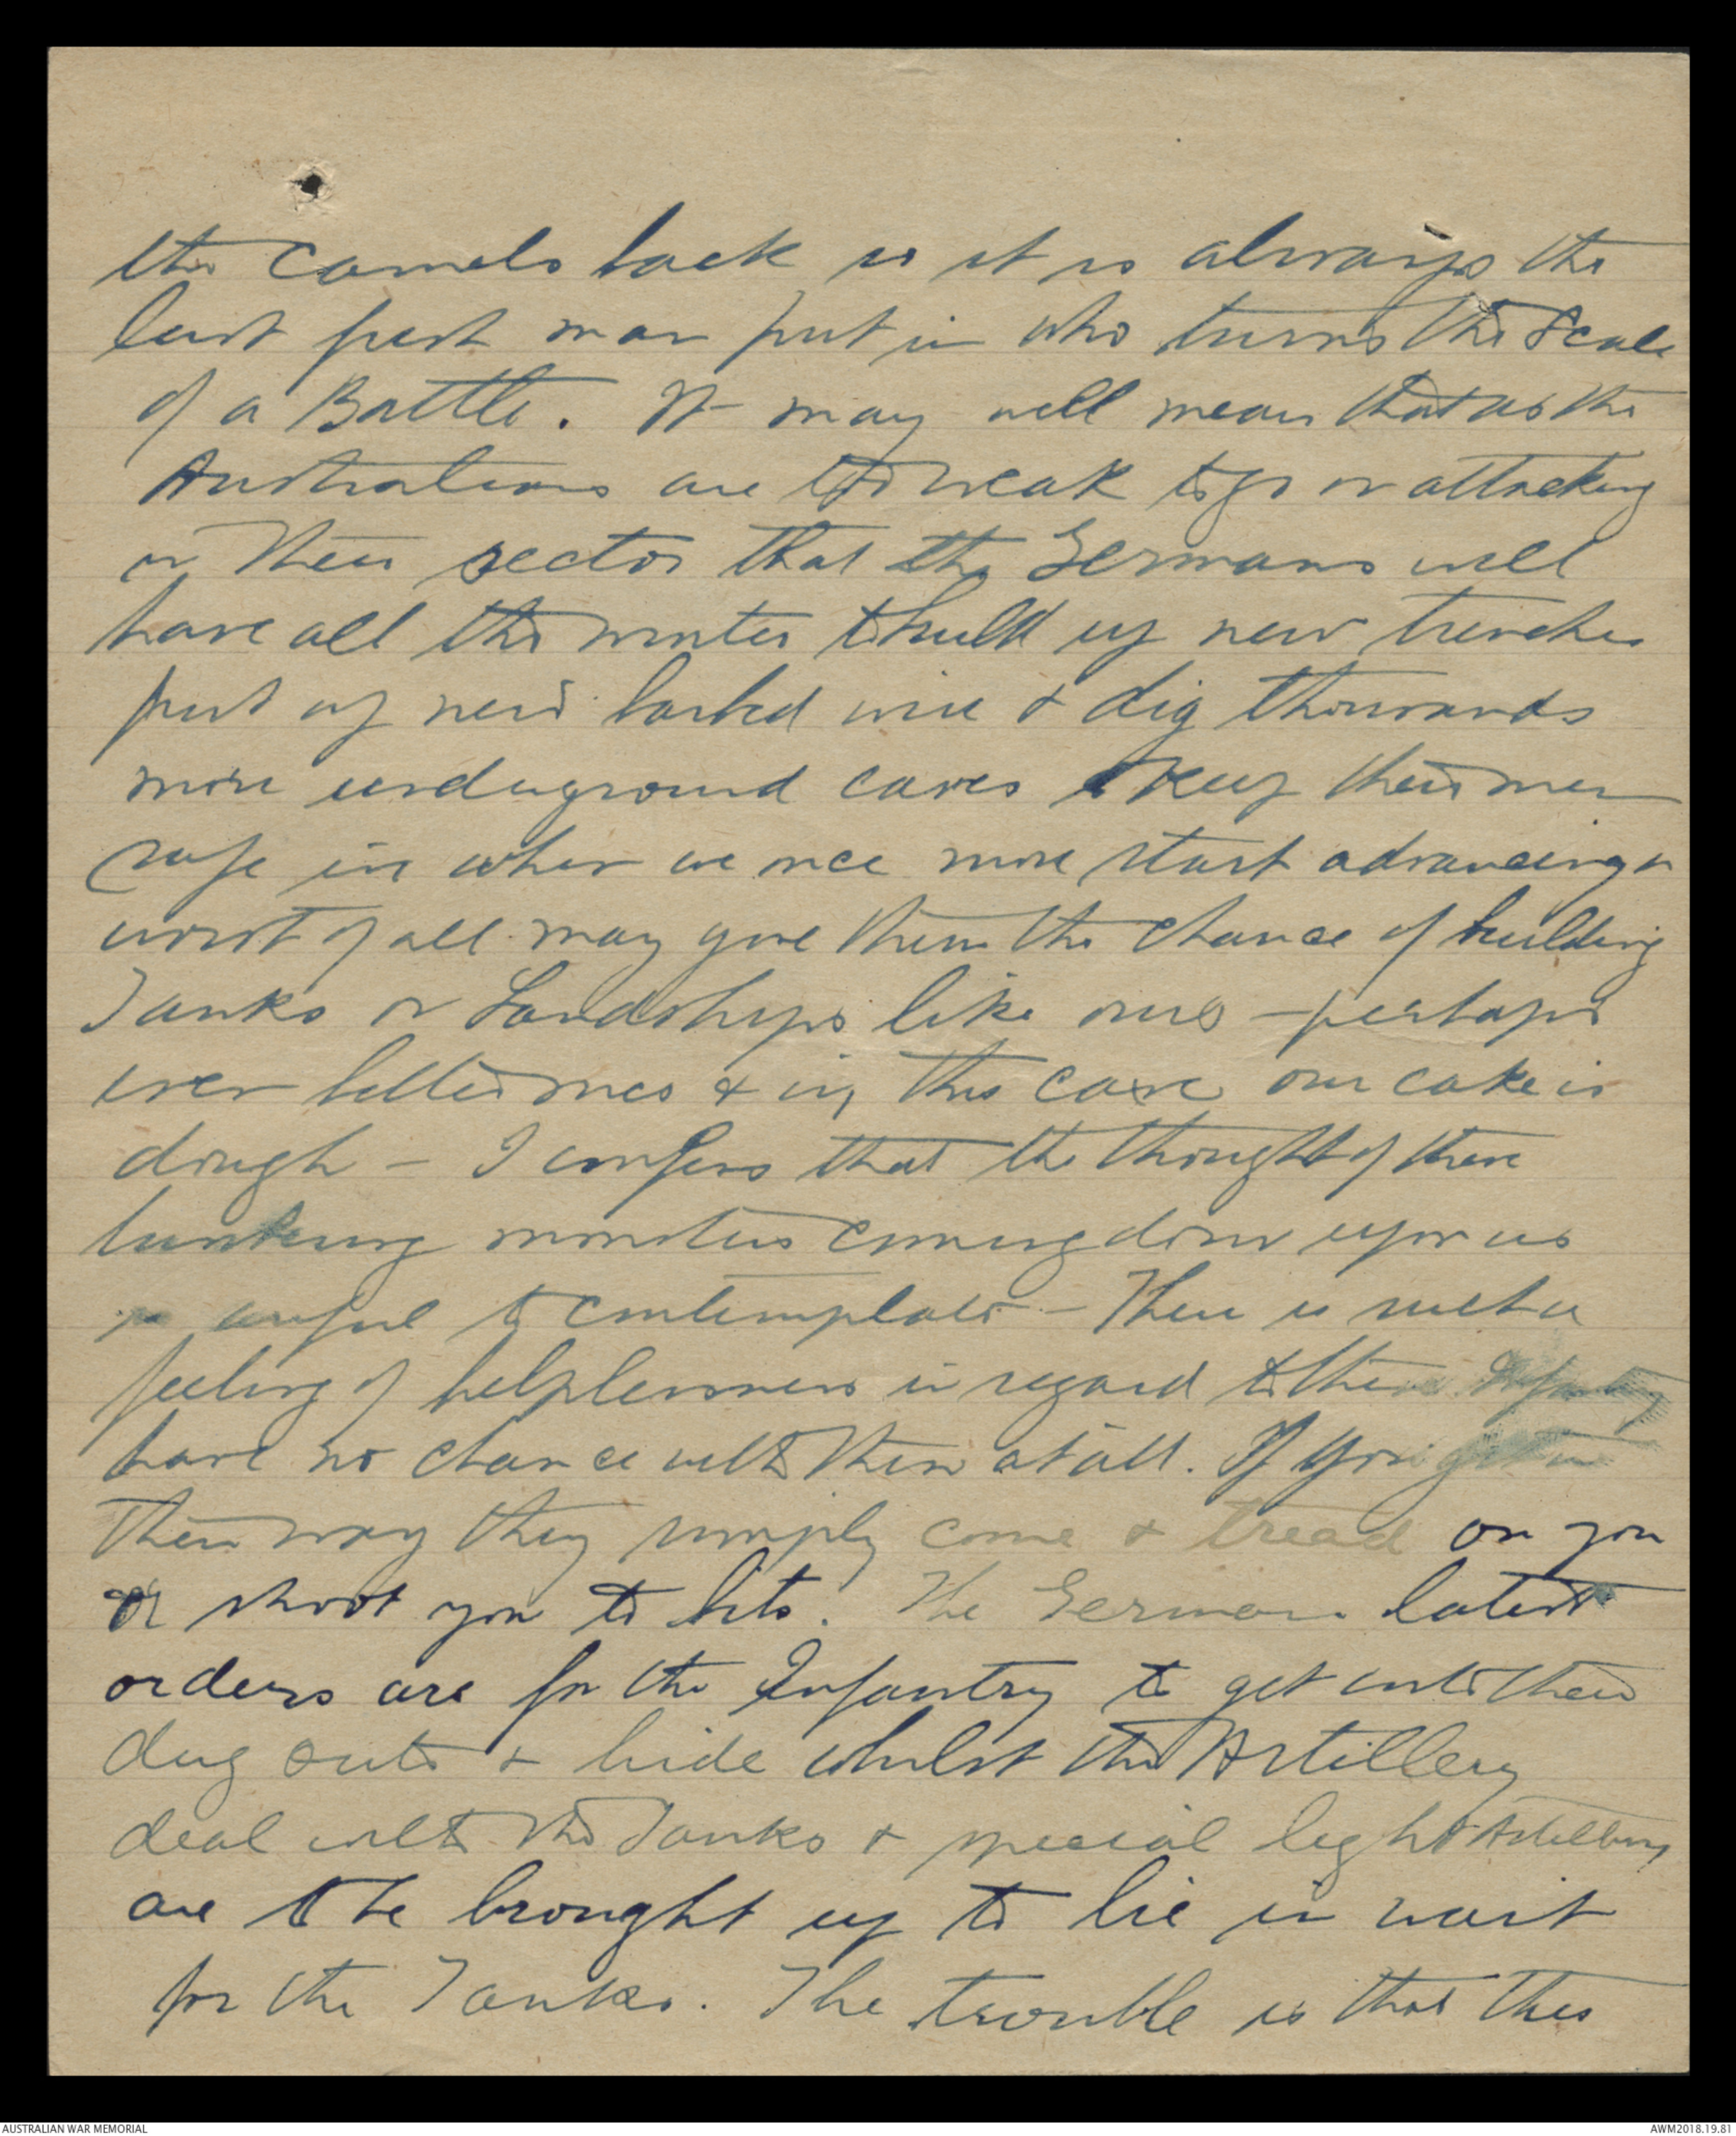 the camels back so it is always the
last fresh man put in who turns the scale
of a Battle. It may well mean that as the
Australians are too weak to go on attacking
on their sector that the Germans will
have all the winter to build up new trenches
put up new barbed wire & dig thousands
more underground caves to keep their men
safe in when we once more start advancing or
worst of all may give them the chance of building
Tanks or Landships like ours - perhaps
even better ones & in this case our cake is
dough - I confess that the thought of these
monsters coming down upon us
is awful to contemplate - There is such a
feeling of helplessness in regard to them Infantry
have no chance with them at all. If you get in
their way they simply come & tread on you
or shoot you to bits. The German latest
orders are for the Infantry to get into their
dug outs & hide whilst the Artillery
deal with the Tanks & special light Artillery
are to be brought up to lie in wait
for the Tanks. The trouble is that this
AUSTRALIAN WAR MEMORIAL
AWM2018.19.81